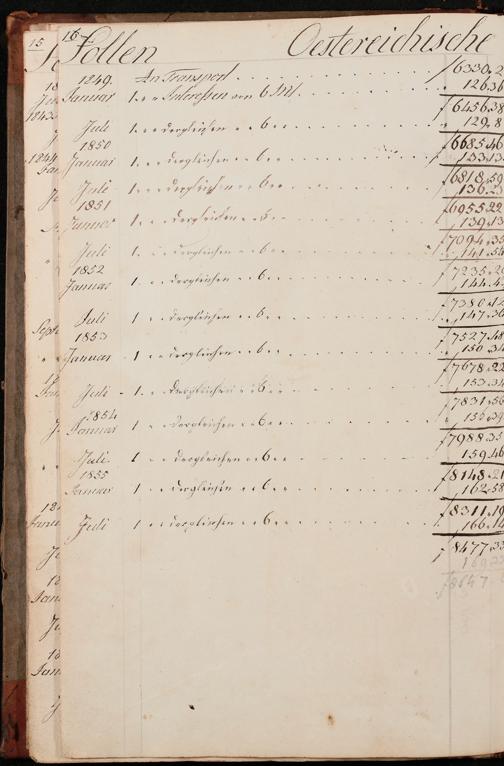 15 16 Follen Oestereichische
1849. An Transport f 6330.2
Januar 1. Interessen von 6 Mt 126.36
f 6456.38
Juli 1. dergleichen 6 129.8
1850 f 6685.46
Januar 1. dergleichen 6 133.13
f 6818.59
Juli 1. dergleichen 6 136.23
1851 f 6955.22
Januar 1. dergleichen 6 139.13
f 7094.35
Juli 1. dergleichen 6 141.54
1852 f 7235.2
Januar 1 dergleichen 6 144.4
f 7380.12
Juli 1 dergleichen 6 147.36
1853 f 7527.48
Januar 1 dergleichen 6 150.34
f 7678.22
Juli 1. dergleichen 6 153.34
1854 f 7831.56
Januar 1 dergleichen 6
f 7988.35
Juli 1 dergleichen 6 159.46
1855 f 8148.21
Januar 1 dergleichen 6 162.58
f 8311.19
Juli 1 dergleichen 6 166.14
f 8477.33
f 8647